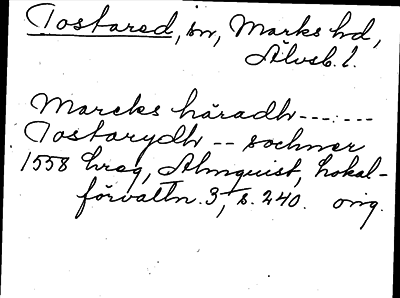 Tostared, sn, Marks hd,
Älvsb. l.
Marcks häradh --- . ---
Tostarydh -- sochner
1558 hreg, Almquist, Lokal-
förvaltn. 3, s. 240. orig.